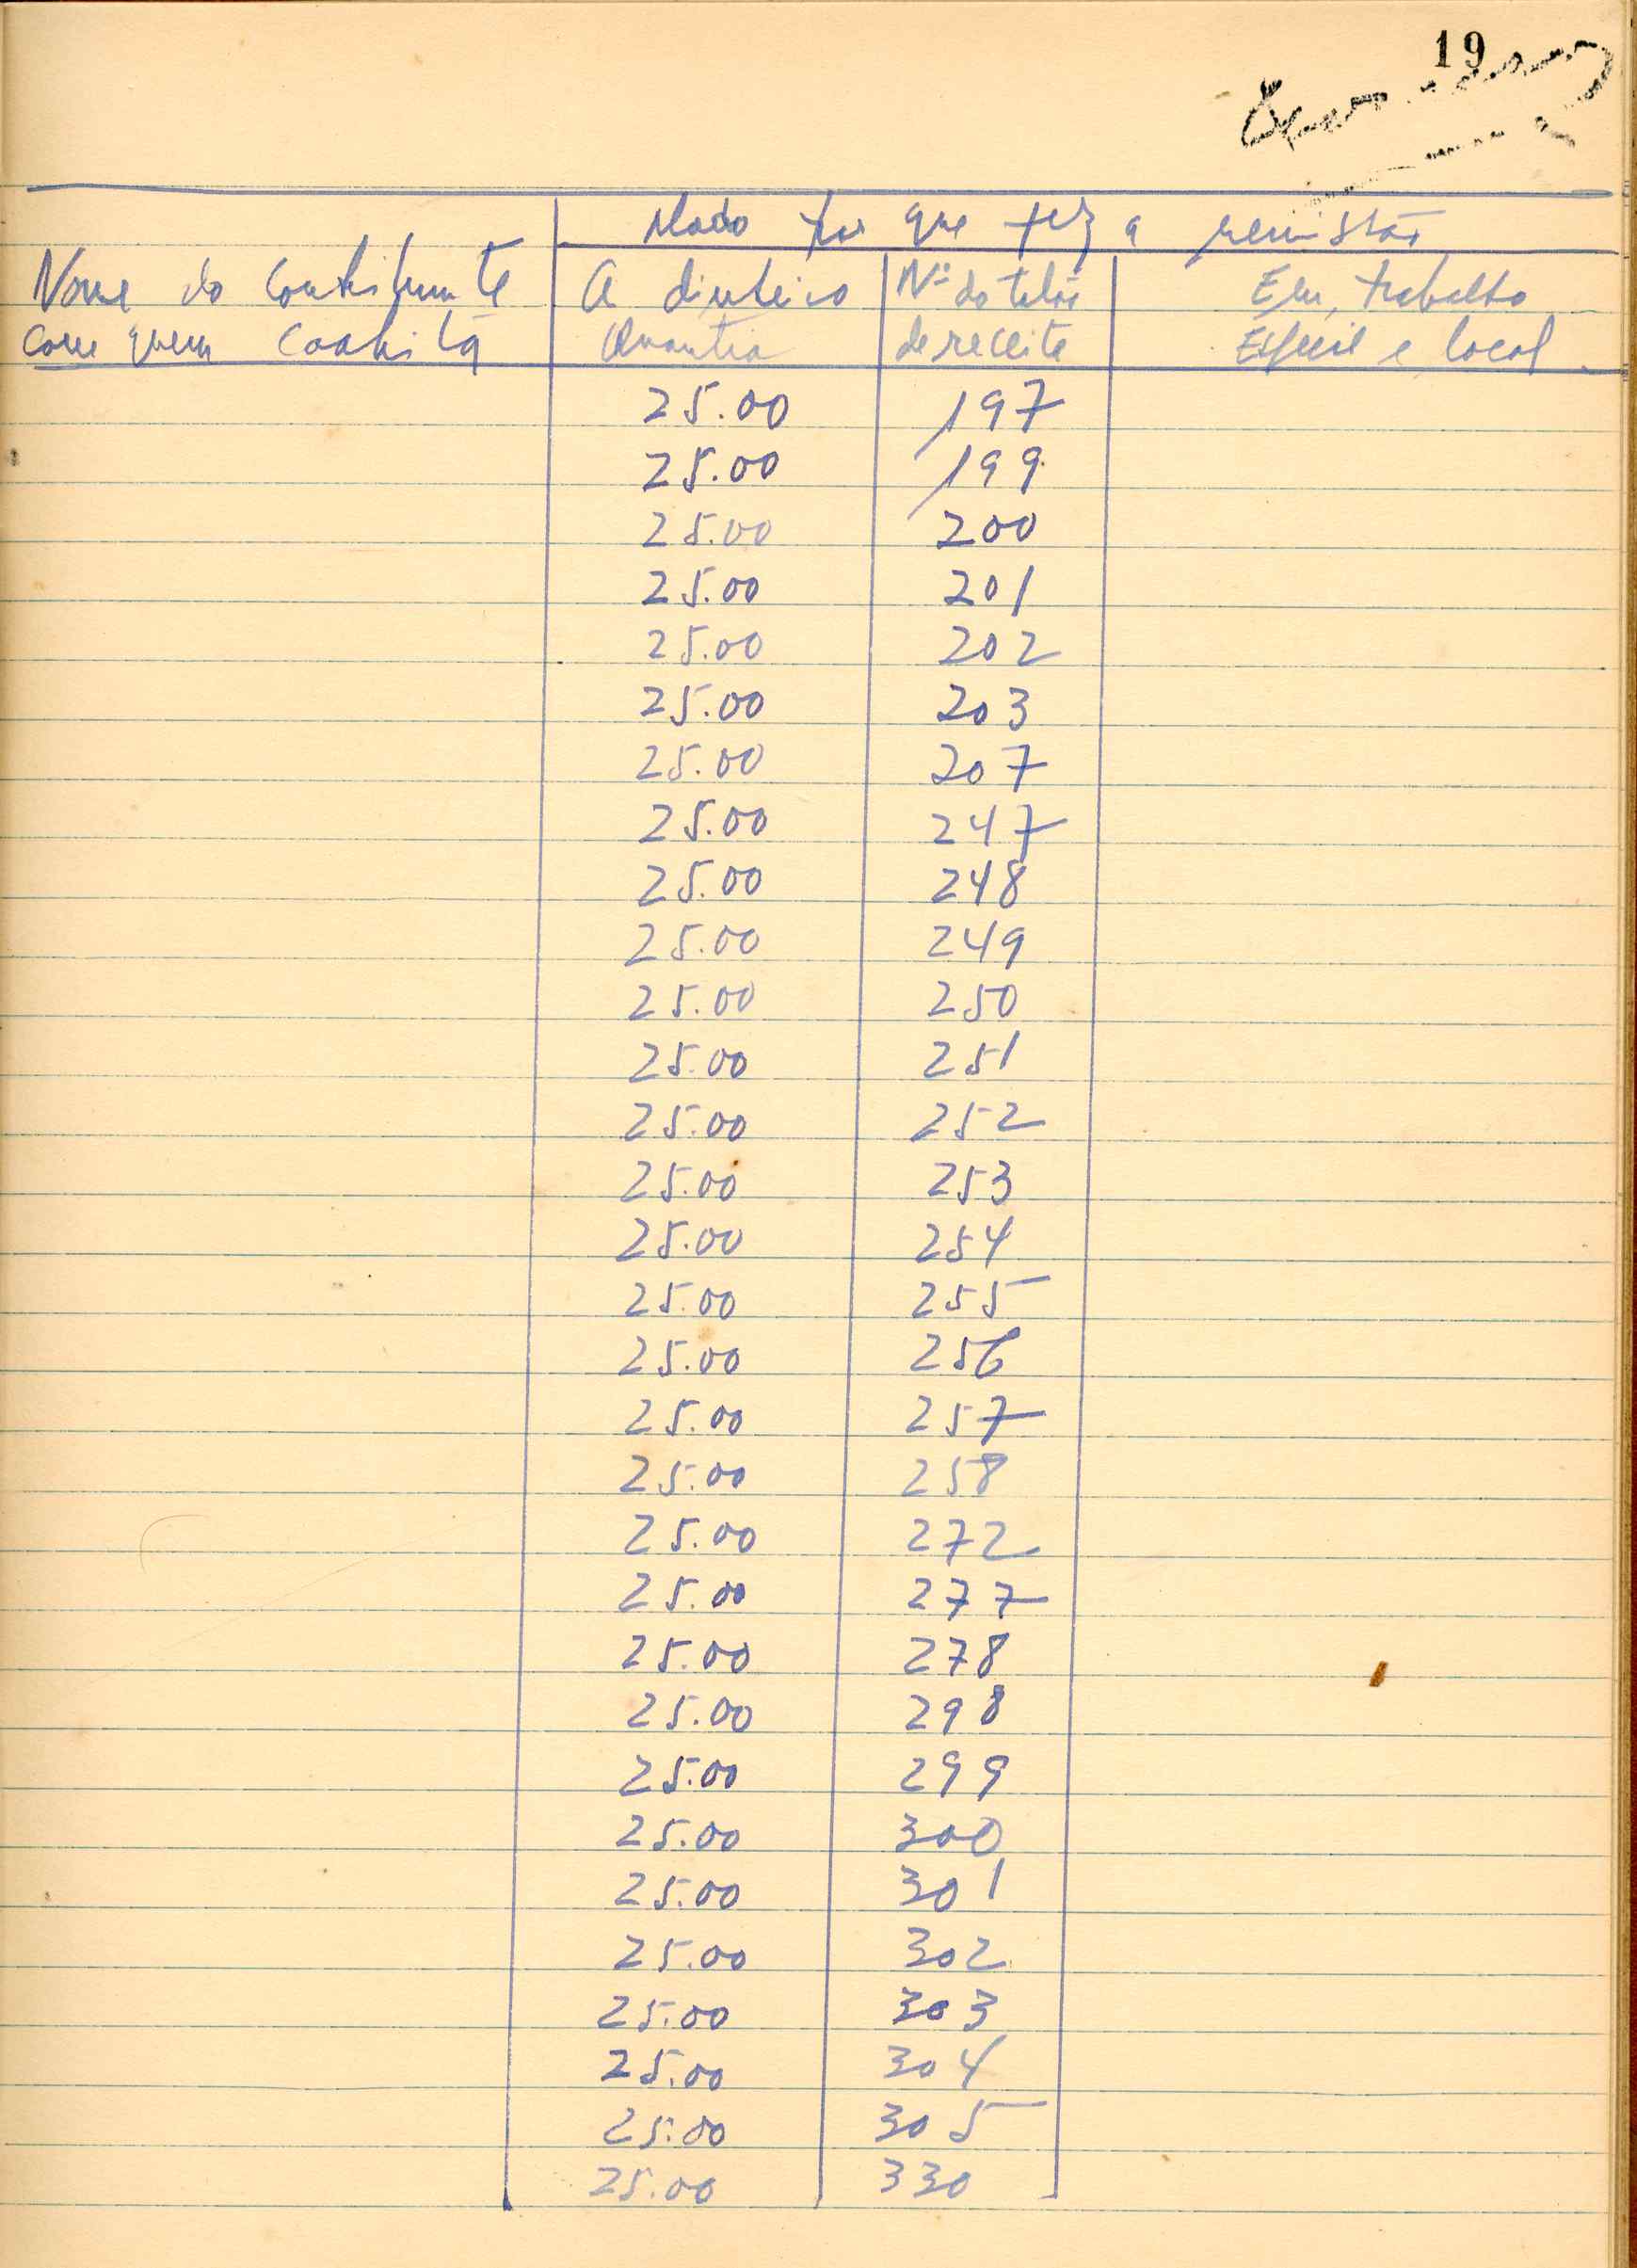 19
Modo por que fez a remissão
Nome do Contribuinte A dinheiro Nº do talão Em trabalho
com quem coabita Quantia de receita Espécie e local
25.00 197
25.00 199
25.00 200
25.00 201
25.00 202
25.00 203
25.00 207
25.00 247
25.00 248
25.00 249
25.00 250
25.00 251
25.00 252
25.00 253
25.00 254
25.00 255
25.00 256
25.00 257
25.00 258
25.00 272
25.00 277
25.00 278
25.00 298
25.00 299
25.00 300
25.00 301
25.00 302
25.00 303
25.00 304
25.00 305
25.00 330